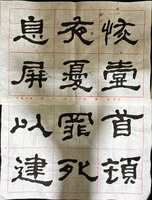 恢壹
夜憂
息屏
首頓
罪死
以建